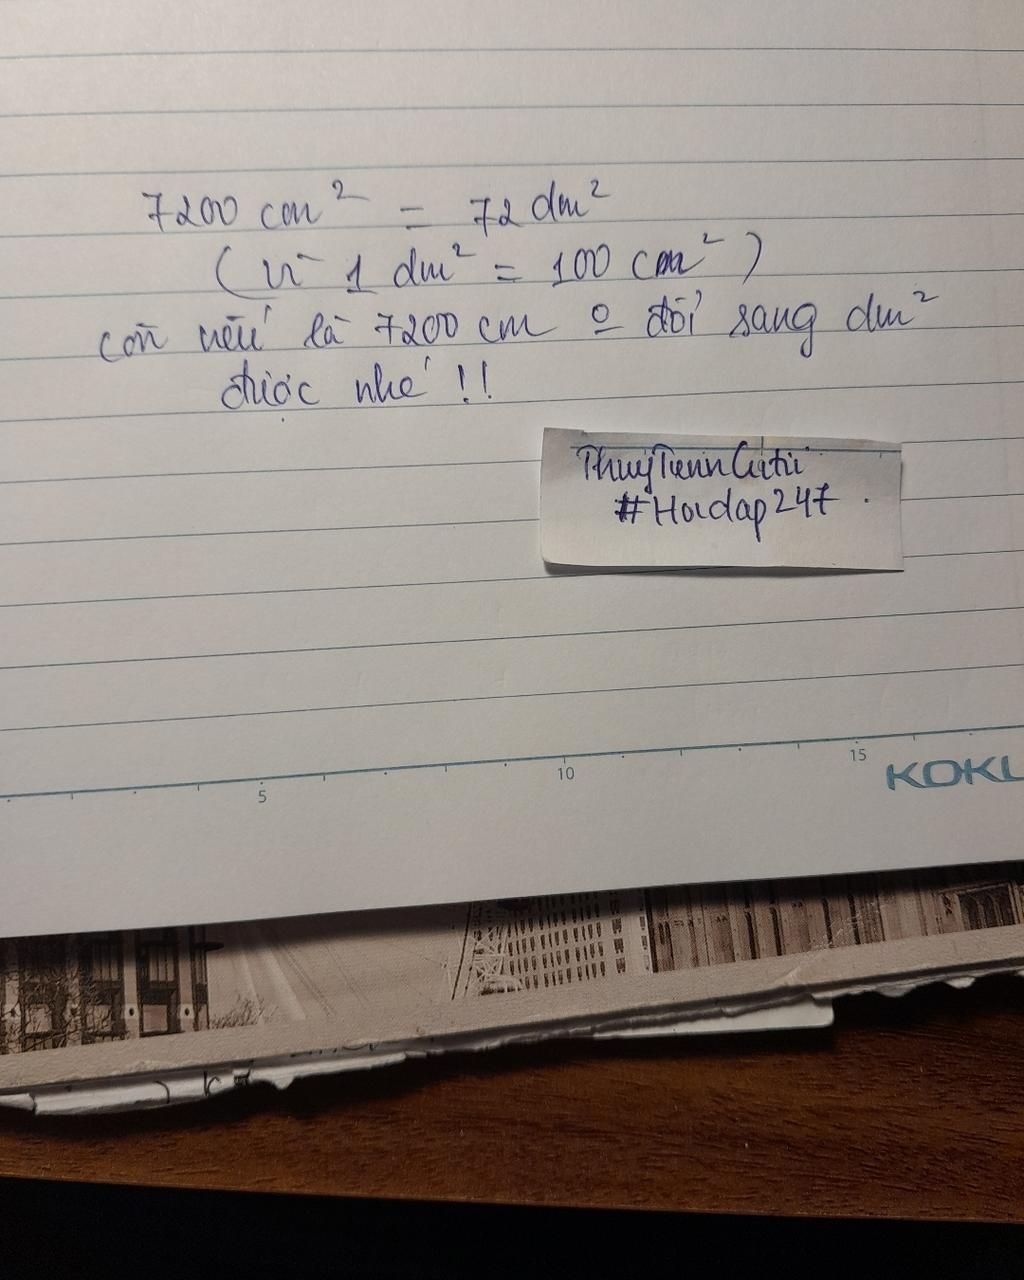 7200 cm² = 72 dm²
(vì 1 dm² = 100 cm²)
còn nếu là 7200 cm o đổi sang dm²
được nhé!!
#Hoidap247
5 10 15
KOKU